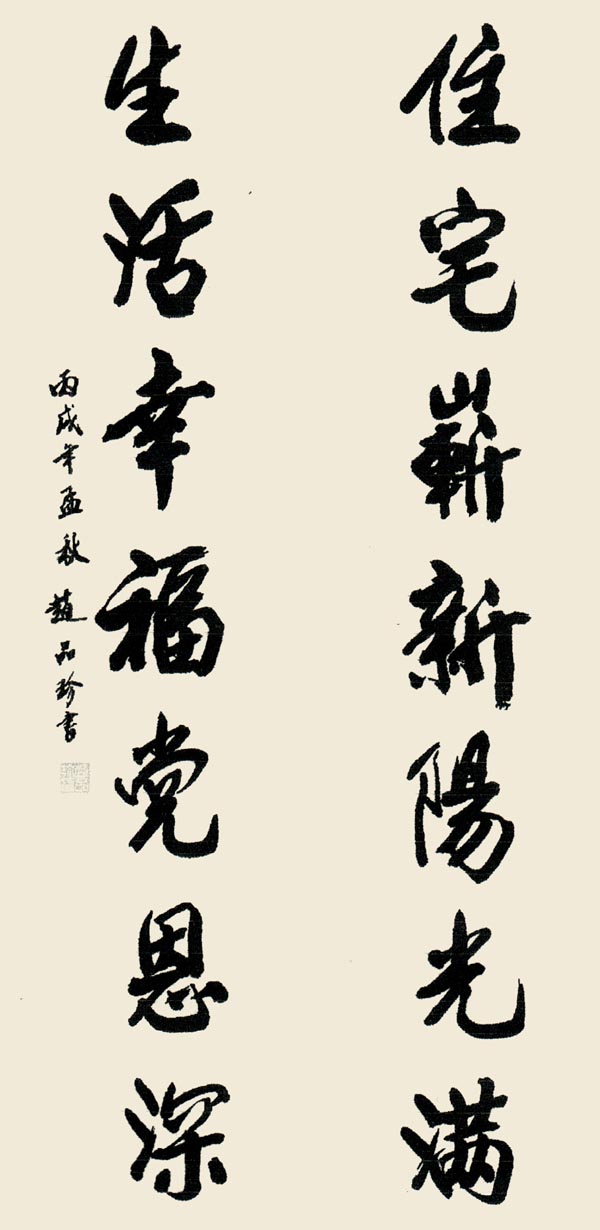 住宅嶄新陽光满
生活幸福党恩深
丙戌年孟秋 趙品珍書